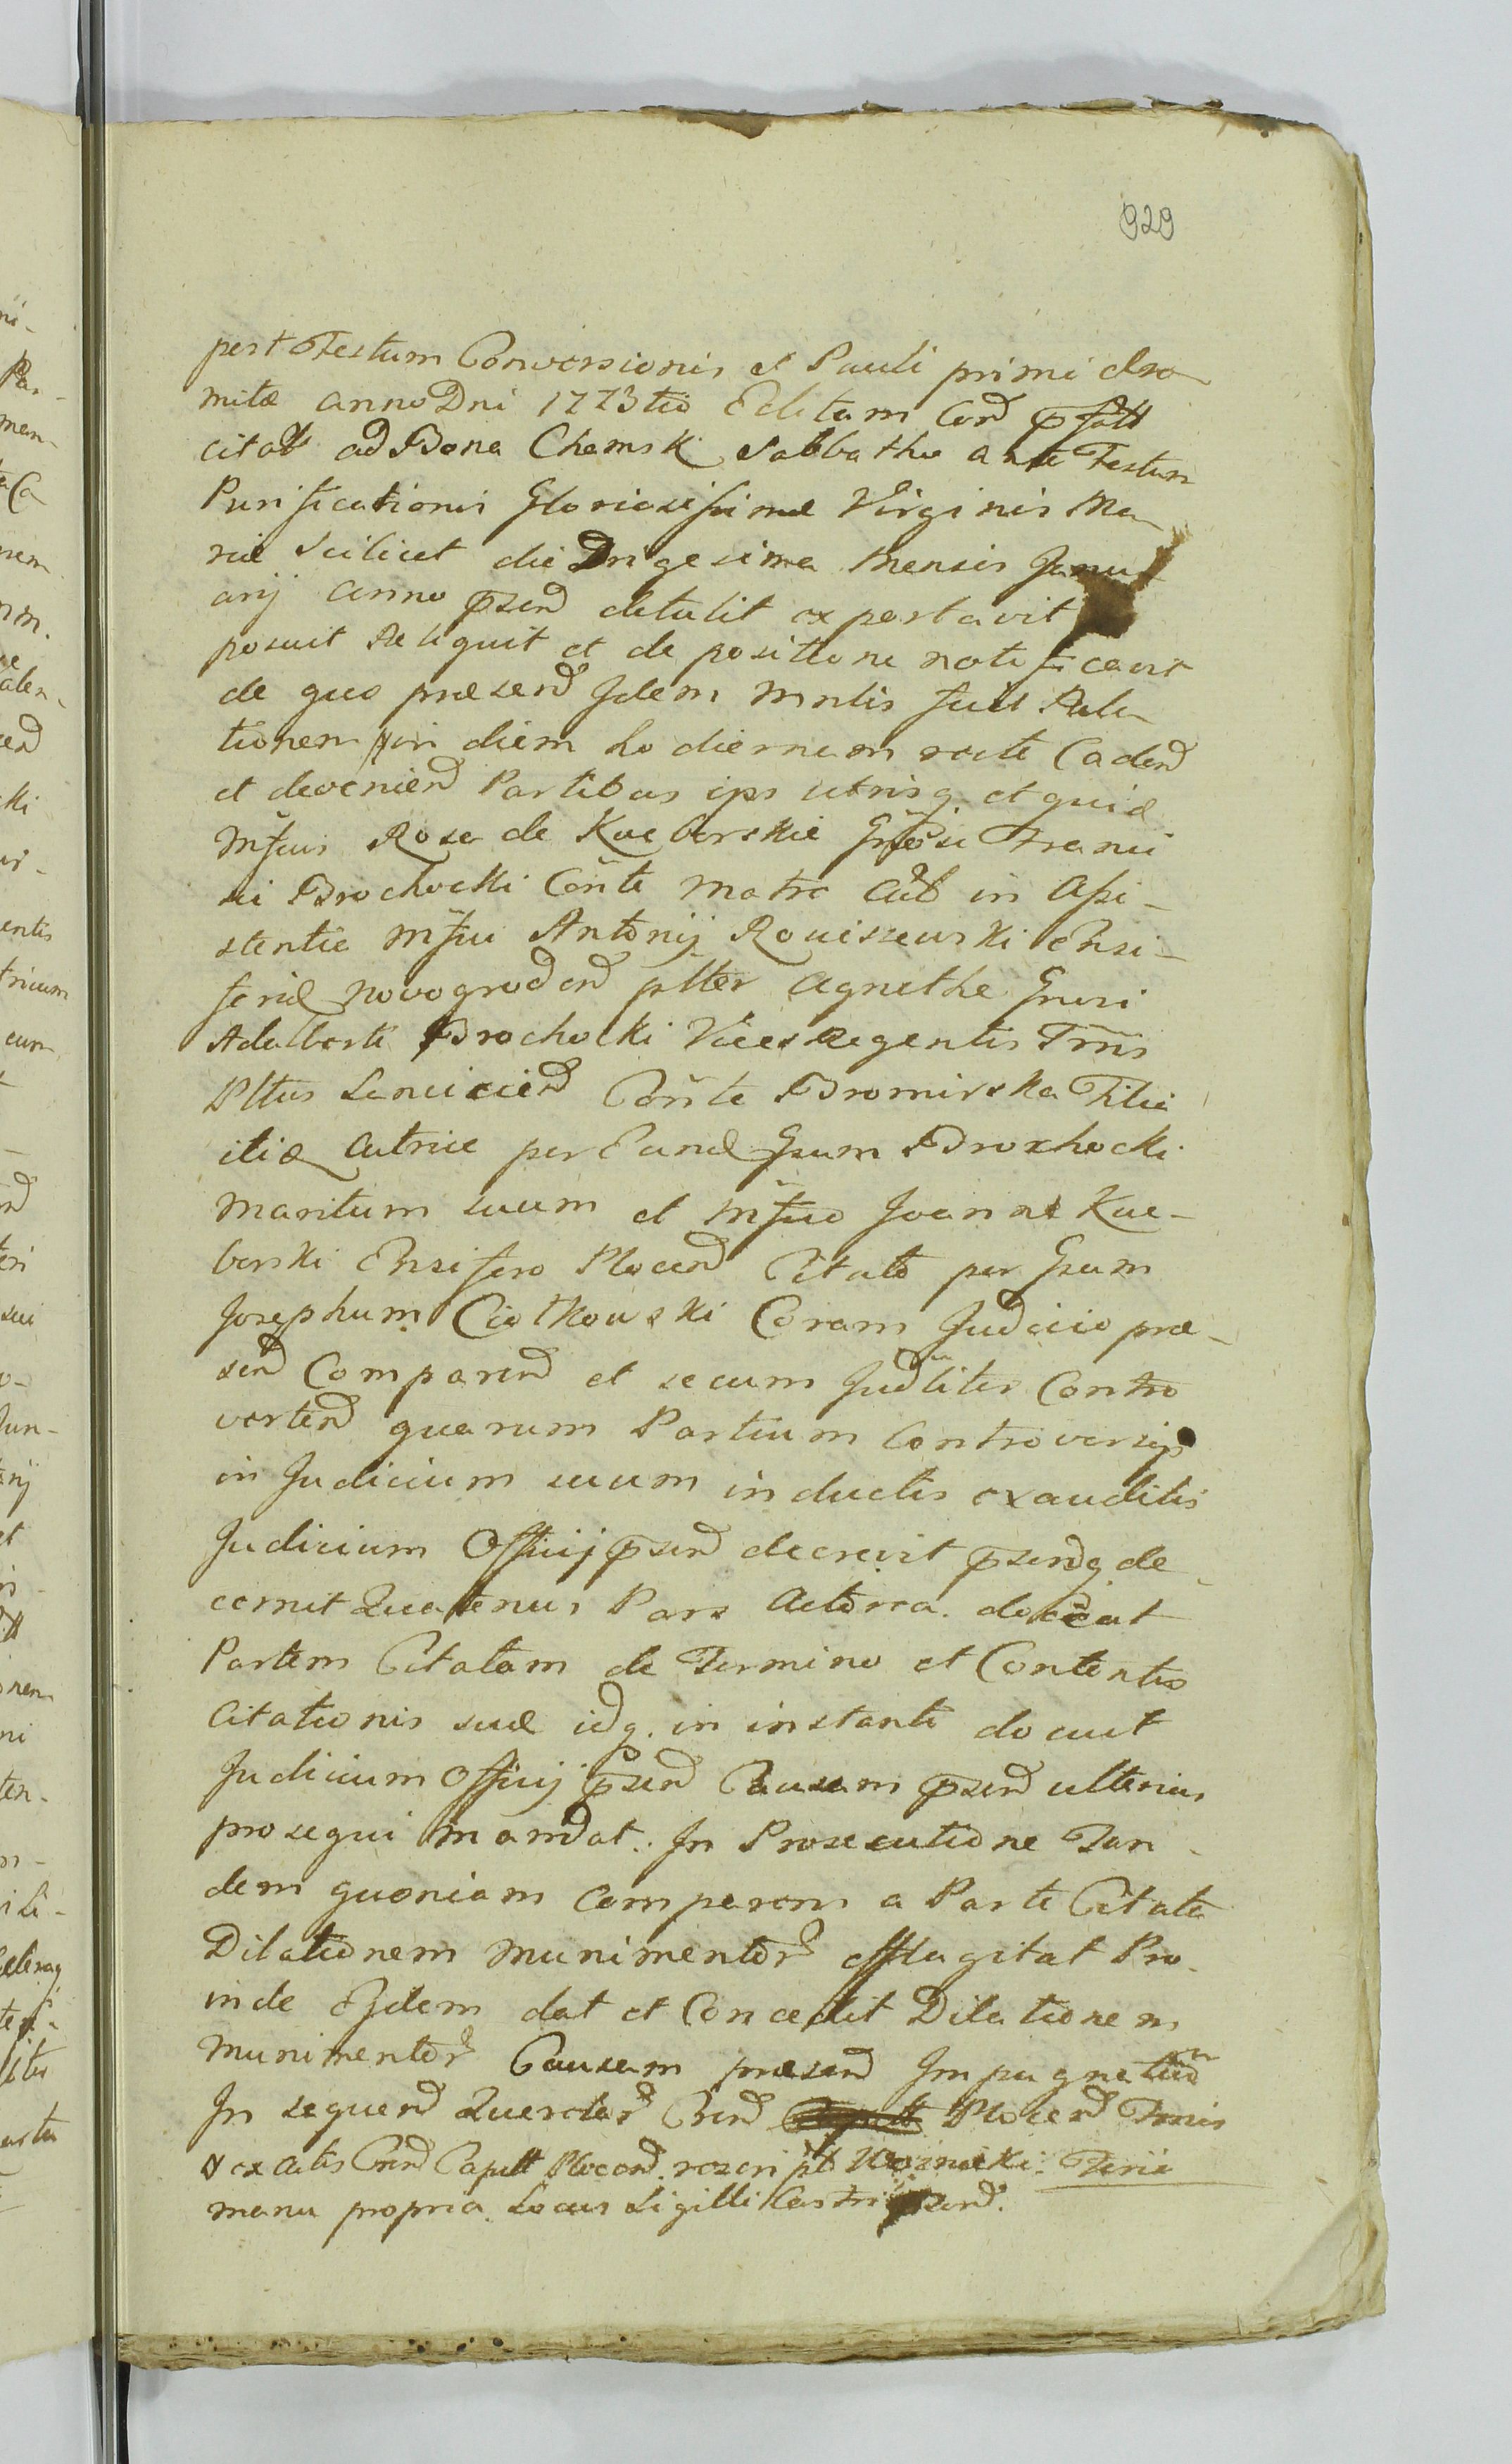 929
post Festum Conversionis S Pauli primi Ere
mitæ anno Dni 1773tio Editam Cord p̄fatt
citatt ad Bona Chamsk Sabbatho ante Festum
Purificationis Gloriosissimæ Virginis Ma-
riæ Scilicet die Trigesima Mensis Janu-
arij anno p̄send detulit exportavit
posuit Reliquit et de positione notificavit
de quo præsend Idem Mnlis fuit Rela
tionem in diem hodiernam rocte Cadend
et deveniend Partibus ips utrisq et quid
Mfcus Rosa de Kucborskie Gnosi Franci
ci Brochocki Conte Matre in Assi-
stentia Mfci Antonij Rociszewski Ensi-
feri Novogroden plter Agnetha Gnosi
Adalberti Brochocki Vices Regentis Trris
Pltus Lencicien Conte Bromirska Filia
illiq Actrice per Eund Gsum Brochocki
Maritum suum et Mfco Joanne Kuc-
borski Ensifero Plocend Citato per Gsum
Josephum Ciołkowski Coram Judicio præ-
send Comparend et secum Judliter Contro
vertend quarum Partium Controversijs
in Judicium suum inductis exauditis
Judicium Officij p̄send decrevit p̄sendq de
cernit Quatenus Pars Actorea doceat
Partem Citatam de Termino et Contentis
Citationis suæ idq. in instanti docuit
Judicium Officij p̄send Causam p̄send ulterius
prosequi mandat. In Prosecutione Tan
dem quoniam Comparens a Parte Citata
Dilationem Munimentor efflagitat Pro
inde Eidem dat et Concedit Dilationem
Munimentor Causam præsend Impugnativ
In sequend Querelar Crend Plocend Trmis
ex actis Crend Capitt Plocend. rescript Feria
manu propria. Locus Sigilli Castri p̄send.